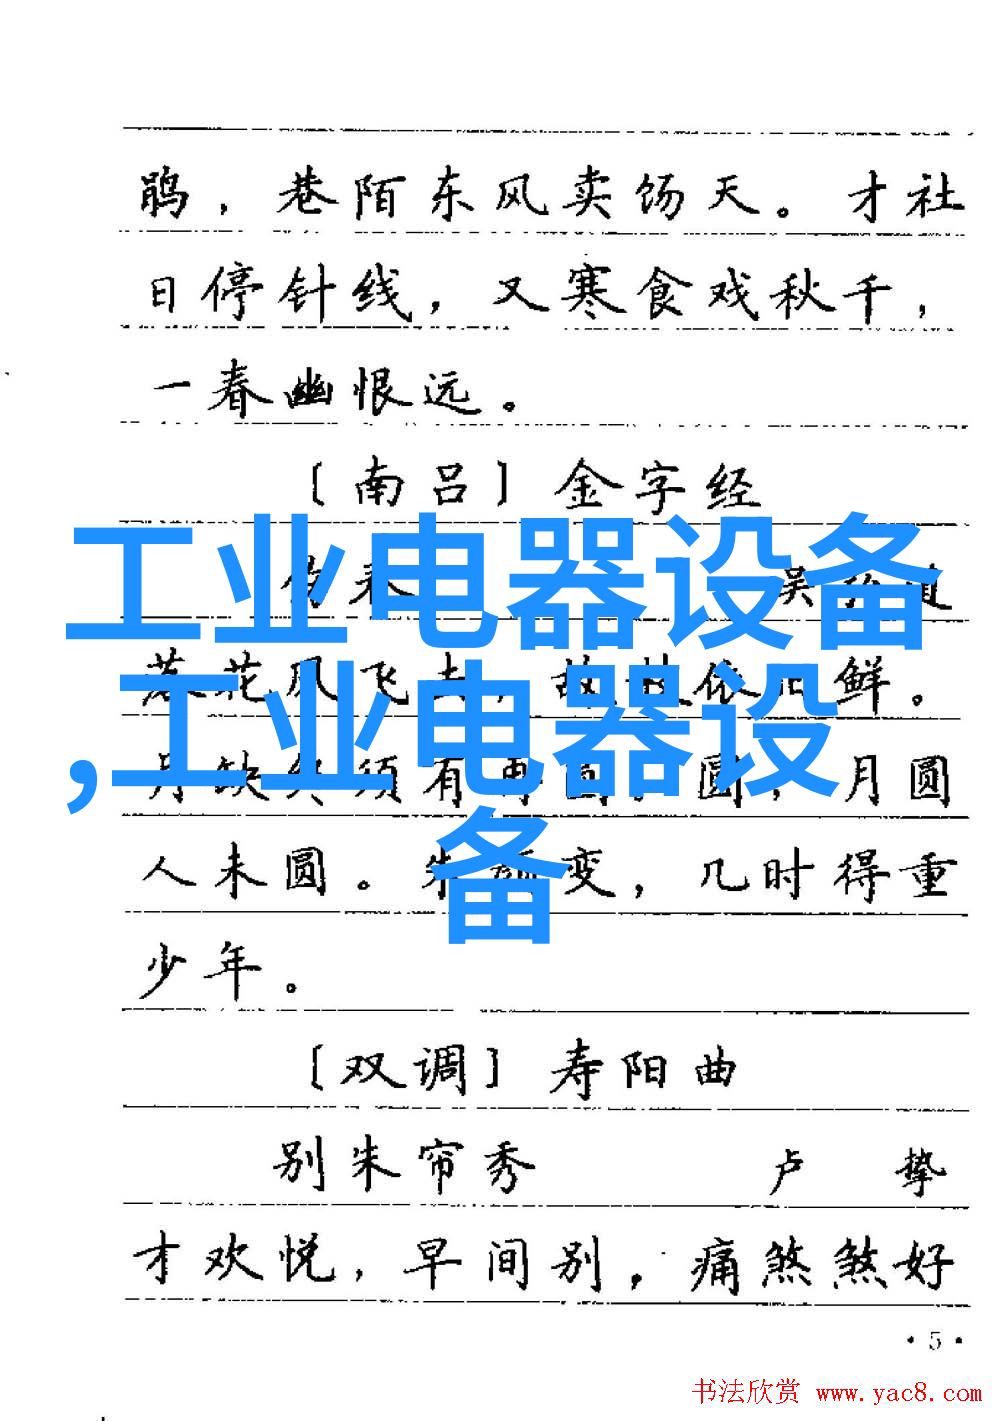 鹃，巷陌东风卖饧天。才社
日停针线，又寒食戏秋千，
一春幽恨远。
〔南吕〕金字经
伤春
工业电器设备
花风飞去，故枝依旧鲜。
,工业电器设
月缺终须有再圆，圆，月圆
人未圆。朱颜变，几时得重
备
少年。
〔双调〕寿阳曲
别朱帘秀 卢挚
才欢悦，早间别，痛煞煞好
·5·
书法欣赏 www.yac8.com